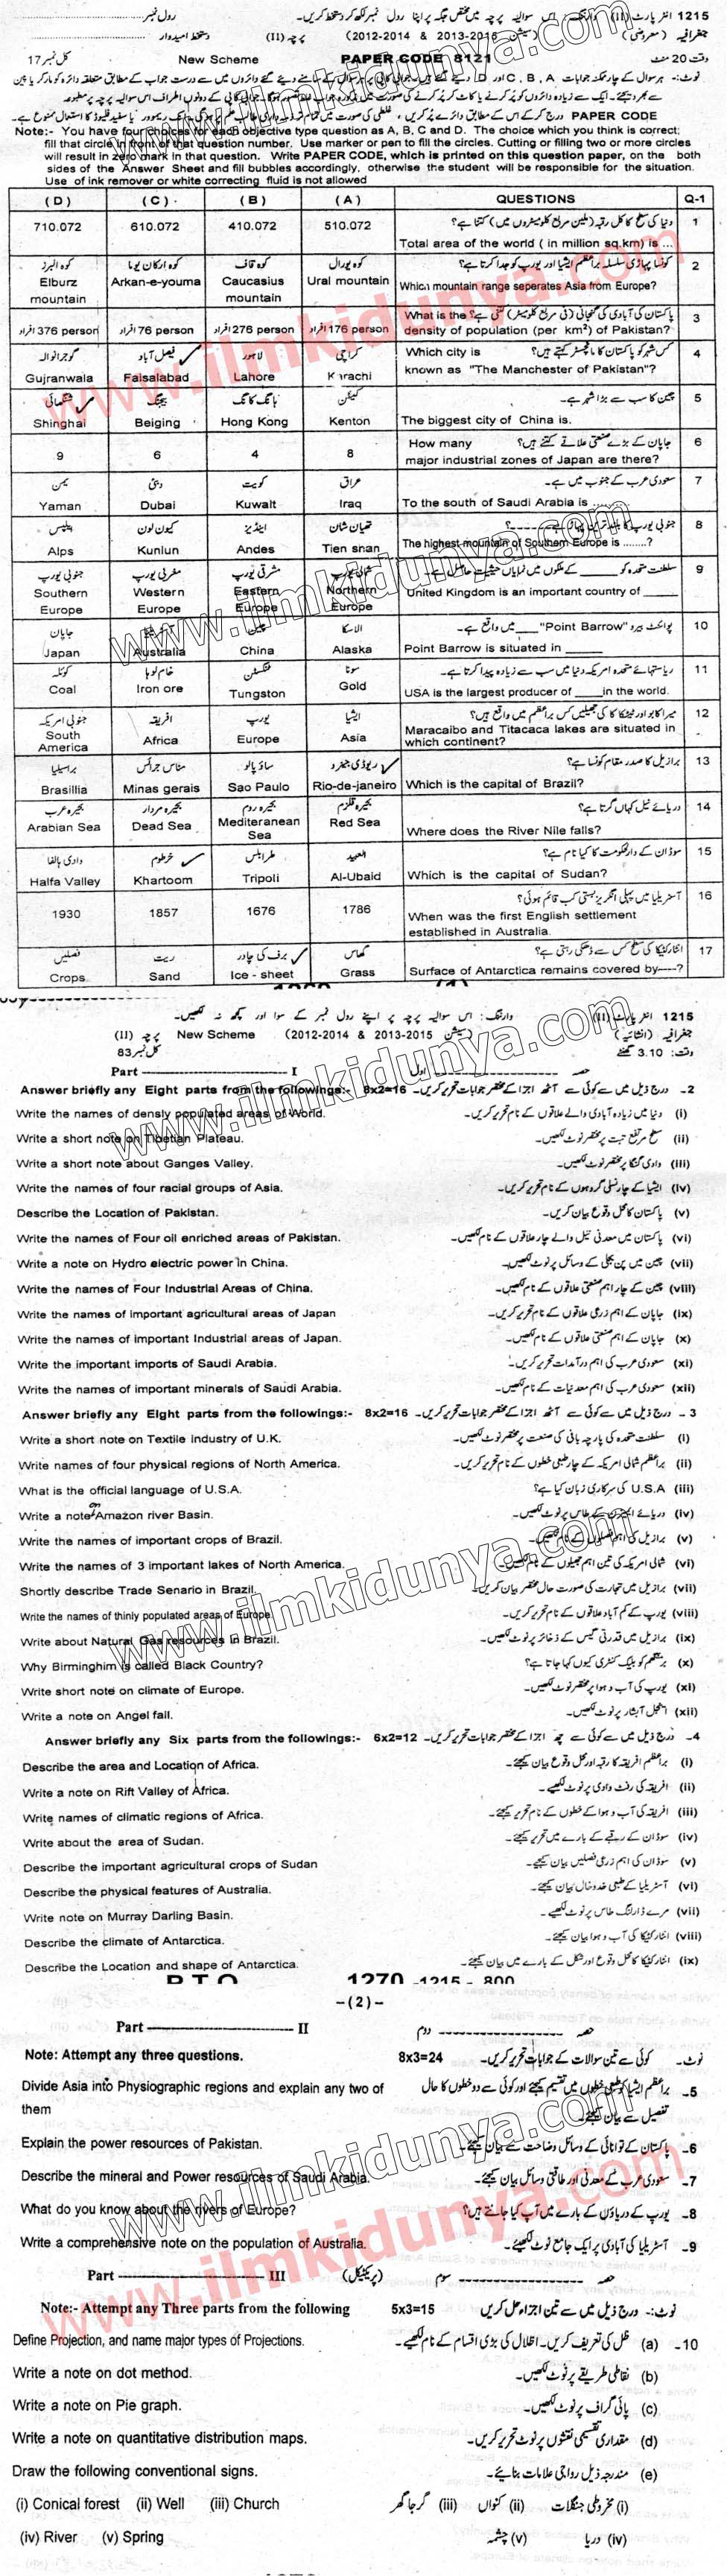 1215 انٹر پارٹ (II) وارننگ : اس سوالیہ پرچہ میں مختص جگہ پر اپنا رول نمبر لکھ کر دستخط کریں۔ رول نمبر
جغرافیہ (معروضی) (سیشن 2012-2014 & 2013-2015) پرچہ (II) دستخط امیدوار
وقت 20 منٹ PAPER CODE 8121 New Scheme کل نمبر 17
Note:- You have four choices for each objective type question as A, B, C and D. The choice which you think is correct;
fill that circle in front of that question number. Use marker or pen to fill the circles. Cutting or filling two or more circles
will result in zero mark in that question. Write PAPER CODE, which is printed on this question paper, on the both
sides of the Answer Sheet and fill bubbles accordingly, otherwise the student will be responsible for the situation.
Use of ink remover or white correcting fluid is not allowed
(D) (C) (B) (A) QUESTIONS Q-1
710.072 610.072 410.072 510.072 دنیا کی سطح کا کل رقبہ (ملین مربع کلومیٹروں میں) کتنا ہے؟ 1
Total area of the world ( in million sq.km) is ...
کوہ البرز کوہ ارکان یوما کوہ قاف کوہ یورال کونسا پہاڑی سلسلہ براعظم ایشیا اور یورپ کو جدا کرتا ہے؟ 2
Elburz mountain Arkan-e-youma Caucasus mountain Ural mountain Which mountain range seperates Asia from Europe?
376 person افراد 76 person افراد 276 person افراد 176 person افراد پاکستان کی آبادی کی گنجانی (فی مربع کلومیٹر) کتنی ہے؟ What is the 3
density of population (per km²) of Pakistan?
گوجرانوالہ فیصل آباد لاہور کراچی کس شہر کو پاکستان کا مانچسٹر کہتے ہیں؟ Which city is 4
Gujranwala Faisalabad Lahore Karachi known as "The Manchester of Pakistan"?
شنگھائی بیجنگ ہانگ کانگ کینٹن چین کا سب سے بڑا شہر ہے۔ 5
Shinghai Beiging Hong Kong Kenton The biggest city of China is.
9 6 4 8 جاپان کے بڑے صنعتی علاقے کتنے ہیں؟ How many 6
major industrial zones of Japan are there?
یمن دبئی کویت عراق سعودی عرب کے جنوب میں ہے۔ 7
Yaman Dubai Kuwalt Iraq To the south of Saudi Arabia is ....
ایلپس کیون لون اینڈیز تھیان شان جنوبی یورپ کا بلند ترین پہاڑ ہے؟ 8
Alps Kunlun Andes Tien snan The highest mountain of Southern Europe is ........?
جنوبی یورپ مغربی یورپ مشرقی یورپ شمالی یورپ سلطنت متحدہ کو ____ کے ملکوں میں نمایاں حیثیت حاصل ہے۔ 9
Southern Europe Western Europe Eastern Europe Northern Europe United Kingdom is an important country of _____
جاپان آسٹریلیا چین الاسکا پوائنٹ بیرو "Point Barrow" ___ میں واقع ہے۔ 10
Japan Australia China Alaska Point Barrow is situated in ______
کوئلہ خام لوہا ٹنگسٹن سونا ریاستہائے متحدہ امریکہ دنیا میں سب سے زیادہ پیدا کرتا ہے۔ 11
Coal Iron ore Tungston Gold USA is the largest producer of ____in the world.
جنوبی امریکہ افریقہ یورپ ایشیا میراکابو اور ٹیٹکا کا کی جھیلیں کس براعظم میں واقع ہیں؟ 12
South America Africa Europe Asia Maracaibo and Titacaca lakes are situated in which continent?
براسیلیا مناس جرائس ساؤ پالو ریوڈی جینرو برازیل کا صدر مقام کونسا ہے؟ 13
Brasillia Minas gerais Sao Paulo Rio-de-janeiro Which is the capital of Brazil?
بحیرہ عرب بحیرہ مردار بحیرہ روم بحیرہ قلزم دریائے نیل کہاں گرتا ہے؟ 14
Arabian Sea Dead Sea Mediteranean Sea Red Sea Where does the River Nile falls?
وادی ہالفا خرطوم طرابلس العبید سوڈان کے دارالحکومت کا کیا نام ہے؟ 15
Halfa Valley Khartoom Tripoli Al-Ubaid Which is the capital of Sudan?
1930 1857 1676 1786 آسٹریلیا میں پہلی انگریز بستی کب قائم ہوئی؟ 16
When was the first English settlement established in Australia.
فصلیں ریت برف کی چادر گھاس انٹارکٹیکا کی سطح کس سے ڈھکی رہتی ہے؟ 17
Crops Sand Ice - sheet Grass Surface of Antarctica remains covered by----?
1215 انٹر پارٹ (II) وارننگ : اس سوالیہ پرچہ پر اپنے رول نمبر کے سوا اور کچھ نہ لکھیں۔
جغرافیہ (انشائیہ) (سیشن 2012-2014 & 2013-2015) New Scheme پرچہ (II)
وقت: 3.10 گھنٹے کل نمبر 83
Part I حصہ اول
Answer briefly any Eight parts from the followings:- 8x2=16 2۔ درج ذیل میں سے کوئی سے آٹھ اجزا کے مختصر جوابات تحریر کریں۔
Write the names of densly populated areas of World. (i) دنیا میں زیادہ آبادی والے علاقوں کے نام تحریر کریں۔
Write a short note on Tibetian Plateau. (ii) سطح مرتفع تبت پر مختصر نوٹ لکھیں۔
Write a short note about Ganges Valley. (iii) وادی گنگا پر مختصر نوٹ لکھیں۔
Write the names of four racial groups of Asia. (iv) ایشیا کے چار نسلی گروہوں کے نام تحریر کریں۔
Describe the Location of Pakistan. (v) پاکستان کا محل وقوع بیان کریں۔
Write the names of Four oil enriched areas of Pakistan. (vi) پاکستان میں معدنی تیل والے چار علاقوں کے نام لکھیں۔
Write a note on Hydro electric power in China. (vii) چین میں پن بجلی کے وسائل پر نوٹ لکھیں۔
Write the names of Four Industrial Areas of China. (viii) چین کے چار اہم صنعتی علاقوں کے نام لکھیں۔
Write the names of important agricultural areas of Japan (ix) جاپان کے اہم زرعی علاقوں کے نام تحریر کریں۔
Write the names of important Industrial areas of Japan. (x) جاپان کے اہم صنعتی علاقوں کے نام لکھیں۔
Write the important imports of Saudi Arabia. (xi) سعودی عرب کی اہم درآمدات تحریر کریں۔
Write the names of important minerals of Saudi Arabia. (xii) سعودی عرب کی اہم معدنیات کے نام لکھیں۔
Answer briefly any Eight parts from the followings:- 8x2=16 3۔ درج ذیل میں سے کوئی سے آٹھ اجزا کے مختصر جوابات تحریر کریں۔
Write a short note on Textile Industry of U.K. (i) سلطنت متحدہ کی پارچہ بافی کی صنعت پر مختصر نوٹ لکھیں۔
Write names of four physical regions of North America. (ii) براعظم شمالی امریکہ کے چار طبعی خطوں کے نام تحریر کریں۔
What is the official language of U.S.A. (iii) U.S.A کی سرکاری زبان کیا ہے؟
Write a note on Amazon river Basin. (iv) دریائے ایمیزن کے طاس پر نوٹ لکھیں۔
Write the names of important crops of Brazil. (v) برازیل کی اہم فصلوں کے نام لکھیں۔
Write the names of 3 important lakes of North America. (vi) شمالی امریکہ کی تین اہم جھیلوں کے نام لکھیں۔
Shortly describe Trade Senario in Brazil. (vii) برازیل میں تجارت کی صورت حال مختصر بیان کریں۔
Write the names of thinly populated areas of Europe. (viii) یورپ کے کم آباد علاقوں کے نام تحریر کریں۔
Write about Natural Gas resources in Brazil. (ix) برازیل میں قدرتی گیس کے ذخائر پر نوٹ لکھیں۔
Why Birminghim is called Black Country? (x) برمنگھم کو بلیک کنٹری کیوں کہا جاتا ہے؟
Write short note on climate of Europe. (xi) یورپ کی آب و ہوا پر مختصر نوٹ لکھیں۔
Write a note on Angel fall. (xii) اینجل آبشار پر نوٹ لکھیں۔
Answer briefly any Six parts from the followings:- 6x2=12 4۔ درج ذیل میں سے کوئی سے چھ اجزا کے مختصر جوابات تحریر کریں۔
Describe the area and Location of Africa. (i) براعظم افریقہ کا رقبہ اور محل وقوع بیان کیجئے۔
Write a note on Rift Valley of Africa. (ii) افریقہ کی رفٹ وادی پر نوٹ لکھیے۔
Write names of climatic regions of Africa. (iii) افریقہ کی آب و ہوا کے خطوں کے نام تحریر کیجئے۔
Write about the area of Sudan. (iv) سوڈان کے رقبے کے بارے میں تحریر کیجئے۔
Describe the important agricultural crops of Sudan (v) سوڈان کی اہم زرعی فصلیں بیان کیجیے۔
Describe the physical features of Australia. (vi) آسٹریلیا کے طبعی خدوخال بیان کیجئے۔
Write note on Murray Darling Basin. (vii) مرے ڈارلنگ طاس پر نوٹ لکھیے۔
Describe the climate of Antarctica. (viii) انٹارکٹیکا کی آب و ہوا بیان کیجئے۔
Describe the Location and shape of Antarctica. (ix) انٹارکٹیکا کا محل وقوع اور شکل کے بارے میں بیان کیجئے۔
P.T.O 1270 -1215 - 800
-(2)-
Part II حصہ دوم
Note: Attempt any three questions. 8x3=24 نوٹ۔ کوئی سے تین سوالات کے جوابات تحریر کریں۔
Divide Asia into Physiographic regions and explain any two of them 5۔ براعظم ایشیا کو طبعی خطوں میں تقسیم کیجئے اور کوئی سے دو خطوں کا حال تفصیل سے بیان کیجئے۔
Explain the power resources of Pakistan. 6۔ پاکستان کے توانائی کے وسائل وضاحت سے بیان کیجئے۔
Describe the mineral and Power resources of Saudi Arabia. 7۔ سعودی عرب کے معدنی اور طاقتی وسائل بیان کیجئے۔
What do you know about the rivers of Europe? 8۔ یورپ کے دریاؤں کے بارے میں آپ کیا جانتے ہیں؟
Write a comprehensive note on the population of Australia. 9۔ آسٹریلیا کی آبادی پر ایک جامع نوٹ لکھیئے۔
Part III (پریکٹیکل) حصہ سوم
Note:- Attempt any Three parts from the following 5x3=15 نوٹ:۔ درج ذیل میں سے تین اجزاء حل کریں
Define Projection, and name major types of Projections. 10۔ (a) ظل کی تعریف کریں۔ اظلال کی بڑی اقسام کے نام لکھیے۔
Write a note on dot method. (b) نقاطی طریقے پر نوٹ لکھیں۔
Write a note on Pie graph. (c) پائی گراف پر نوٹ لکھیں۔
Write a note on quantitative distribution maps. (d) مقداری تقسیمی نقشوں پر نوٹ تحریر کریں۔
Draw the following conventional signs. (e) مندرجہ ذیل رواجی علامات بنائیے۔
(i) Conical forest (ii) Well (iii) Church (i) مخروطی جنگلات (ii) کنواں (iii) گرجا گھر
(iv) River (v) Spring (iv) دریا (v) چشمہ
www.ilmkidunya.com